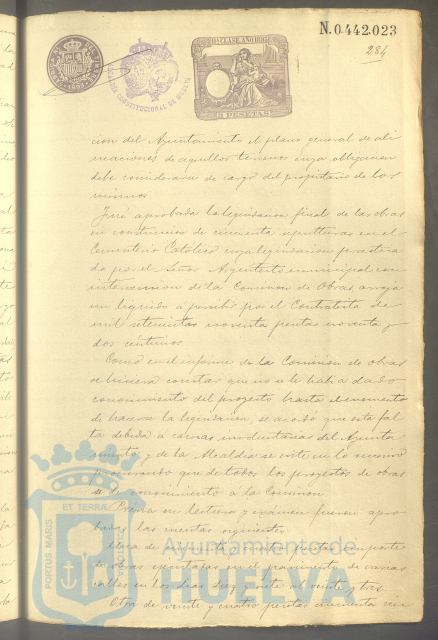 N.0.442.023
284
5 PESETAS
cion del Ayuntamiento el plano general de ali
neaciones de aquellos terrenos cuya obligacion
debe considerarse de cargo del propietario de los
mismos
Fué aprobada la liquidacion final de las obras
de construccion de cincuenta sepulturas en el
Cementerio Católico cuya liquidacion practica
da por el Señor Arquitecto municipal con
intervencion de la Comision de Obras, arroja
un líquido á percibir por el Contratista de
mil setecientas noventa pesetas noventa y
dos céntimos
Como en el informe de la Comision de obras
se hiciera constar que no se le habia dado
conocimiento del proyecto hasta el momento
de hacerse la liquidacion, se acordó que esta fal
ta debida á causas involuntarias del Ayunta
miento y de la Alcaldia se evite en lo sucesivo
procurando que de todos los proyectos de obras
se dé conocimiento a la Comision
Previa su lectura y exámen fueron apro
badas las cuentas siguientes
Una de pesetas importe
de obras ejecutadas en el pavimento de varias
calles en los dias diez y siete al veinte y tres
Otra de veinte y cuatro pesetas cincuenta cén
PORTUS MARIS
ET TERRÆ
CUSTODIA
Ayuntamiento de
HUELVA